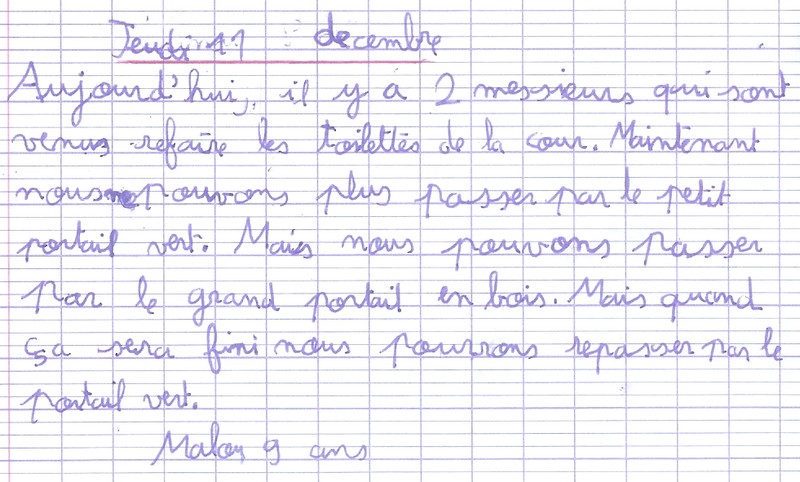 Jeudi 11 decembre
Aujourd'hui, il y a 2 messieurs qui sont
venus refaire les toilettes de la cour. Maintenant
nous ne pouvons plus passer par le petit
portail vert. Mais nous pouvons passer
par le grand portail en bois. Mais quand
ça sera fini nous pourrons repasser par le
portail vert.
9 ans